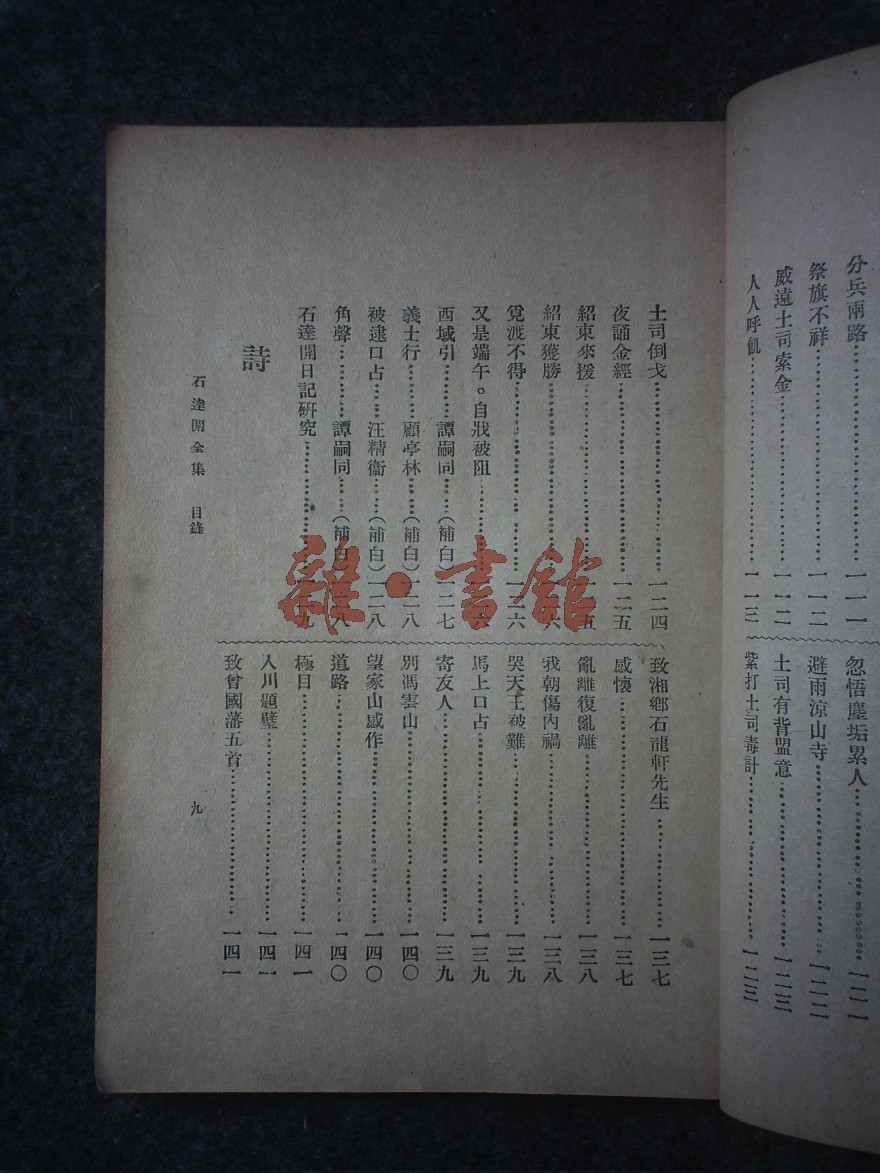 分兵兩路……一一一
祭旗不祥……一一二
威遠土司索金……一一二
人人呼飢……一一三
忽悟塵垢累人……一二一
避雨涼山寺……一二二
土司有背盟意……一二三
紫打土司毒計……一二三
土司倒戈……一二四
夜誦金經……一二五
紹東來援……一二五
紹東獲勝……一二六
覓渡不得……一二六
又是端午。自戕被阻……一二六
西域引……譚嗣同……(補白)一二七
義士行……顧亭林……(補白)一二八
被逮口占……汪精衞……(補白)一二八
角聲……譚嗣同……(補白)一二八
石達開日記研究……一二九
詩
致湘鄉石龍軒先生……一三七
感懷……一三七
亂離復亂離……一三八
我朝傷內禍……一三八
哭天王被難……一三九
馬上口占……一三九
寄友人……一三九
別馮雲山……一四〇
望家山感作……一四〇
道路……一四〇
極目……一四一
入川題壁……一四一
致曾國藩五首……一四一
石達開全集 目錄
九
雜·書館